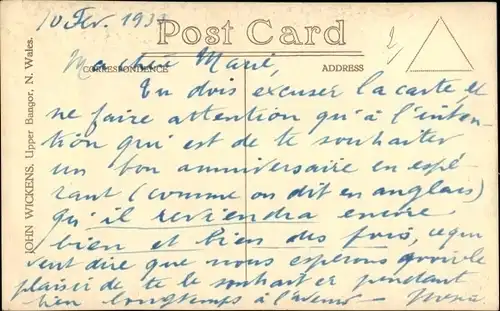 10 Fév. 193
Post Card
CORRESPONDENCE
ADDRESS
JOHN WICKENS, Upper Bangor, N. Wales.
Ma chère Marie,
Tu dois excuser la carte, et
ne faire attention qu'à l'inten-
tion qui est de te souhaiter
un bon anniversaire en espé-
rant (comme on dit en anglais)
qu'il reviendra encore
bien et bien des fois, ce qui
veut dire que nous espérons avoir le
plaisir de te le souhaiter pendant
bien longtemps à l'avenir —